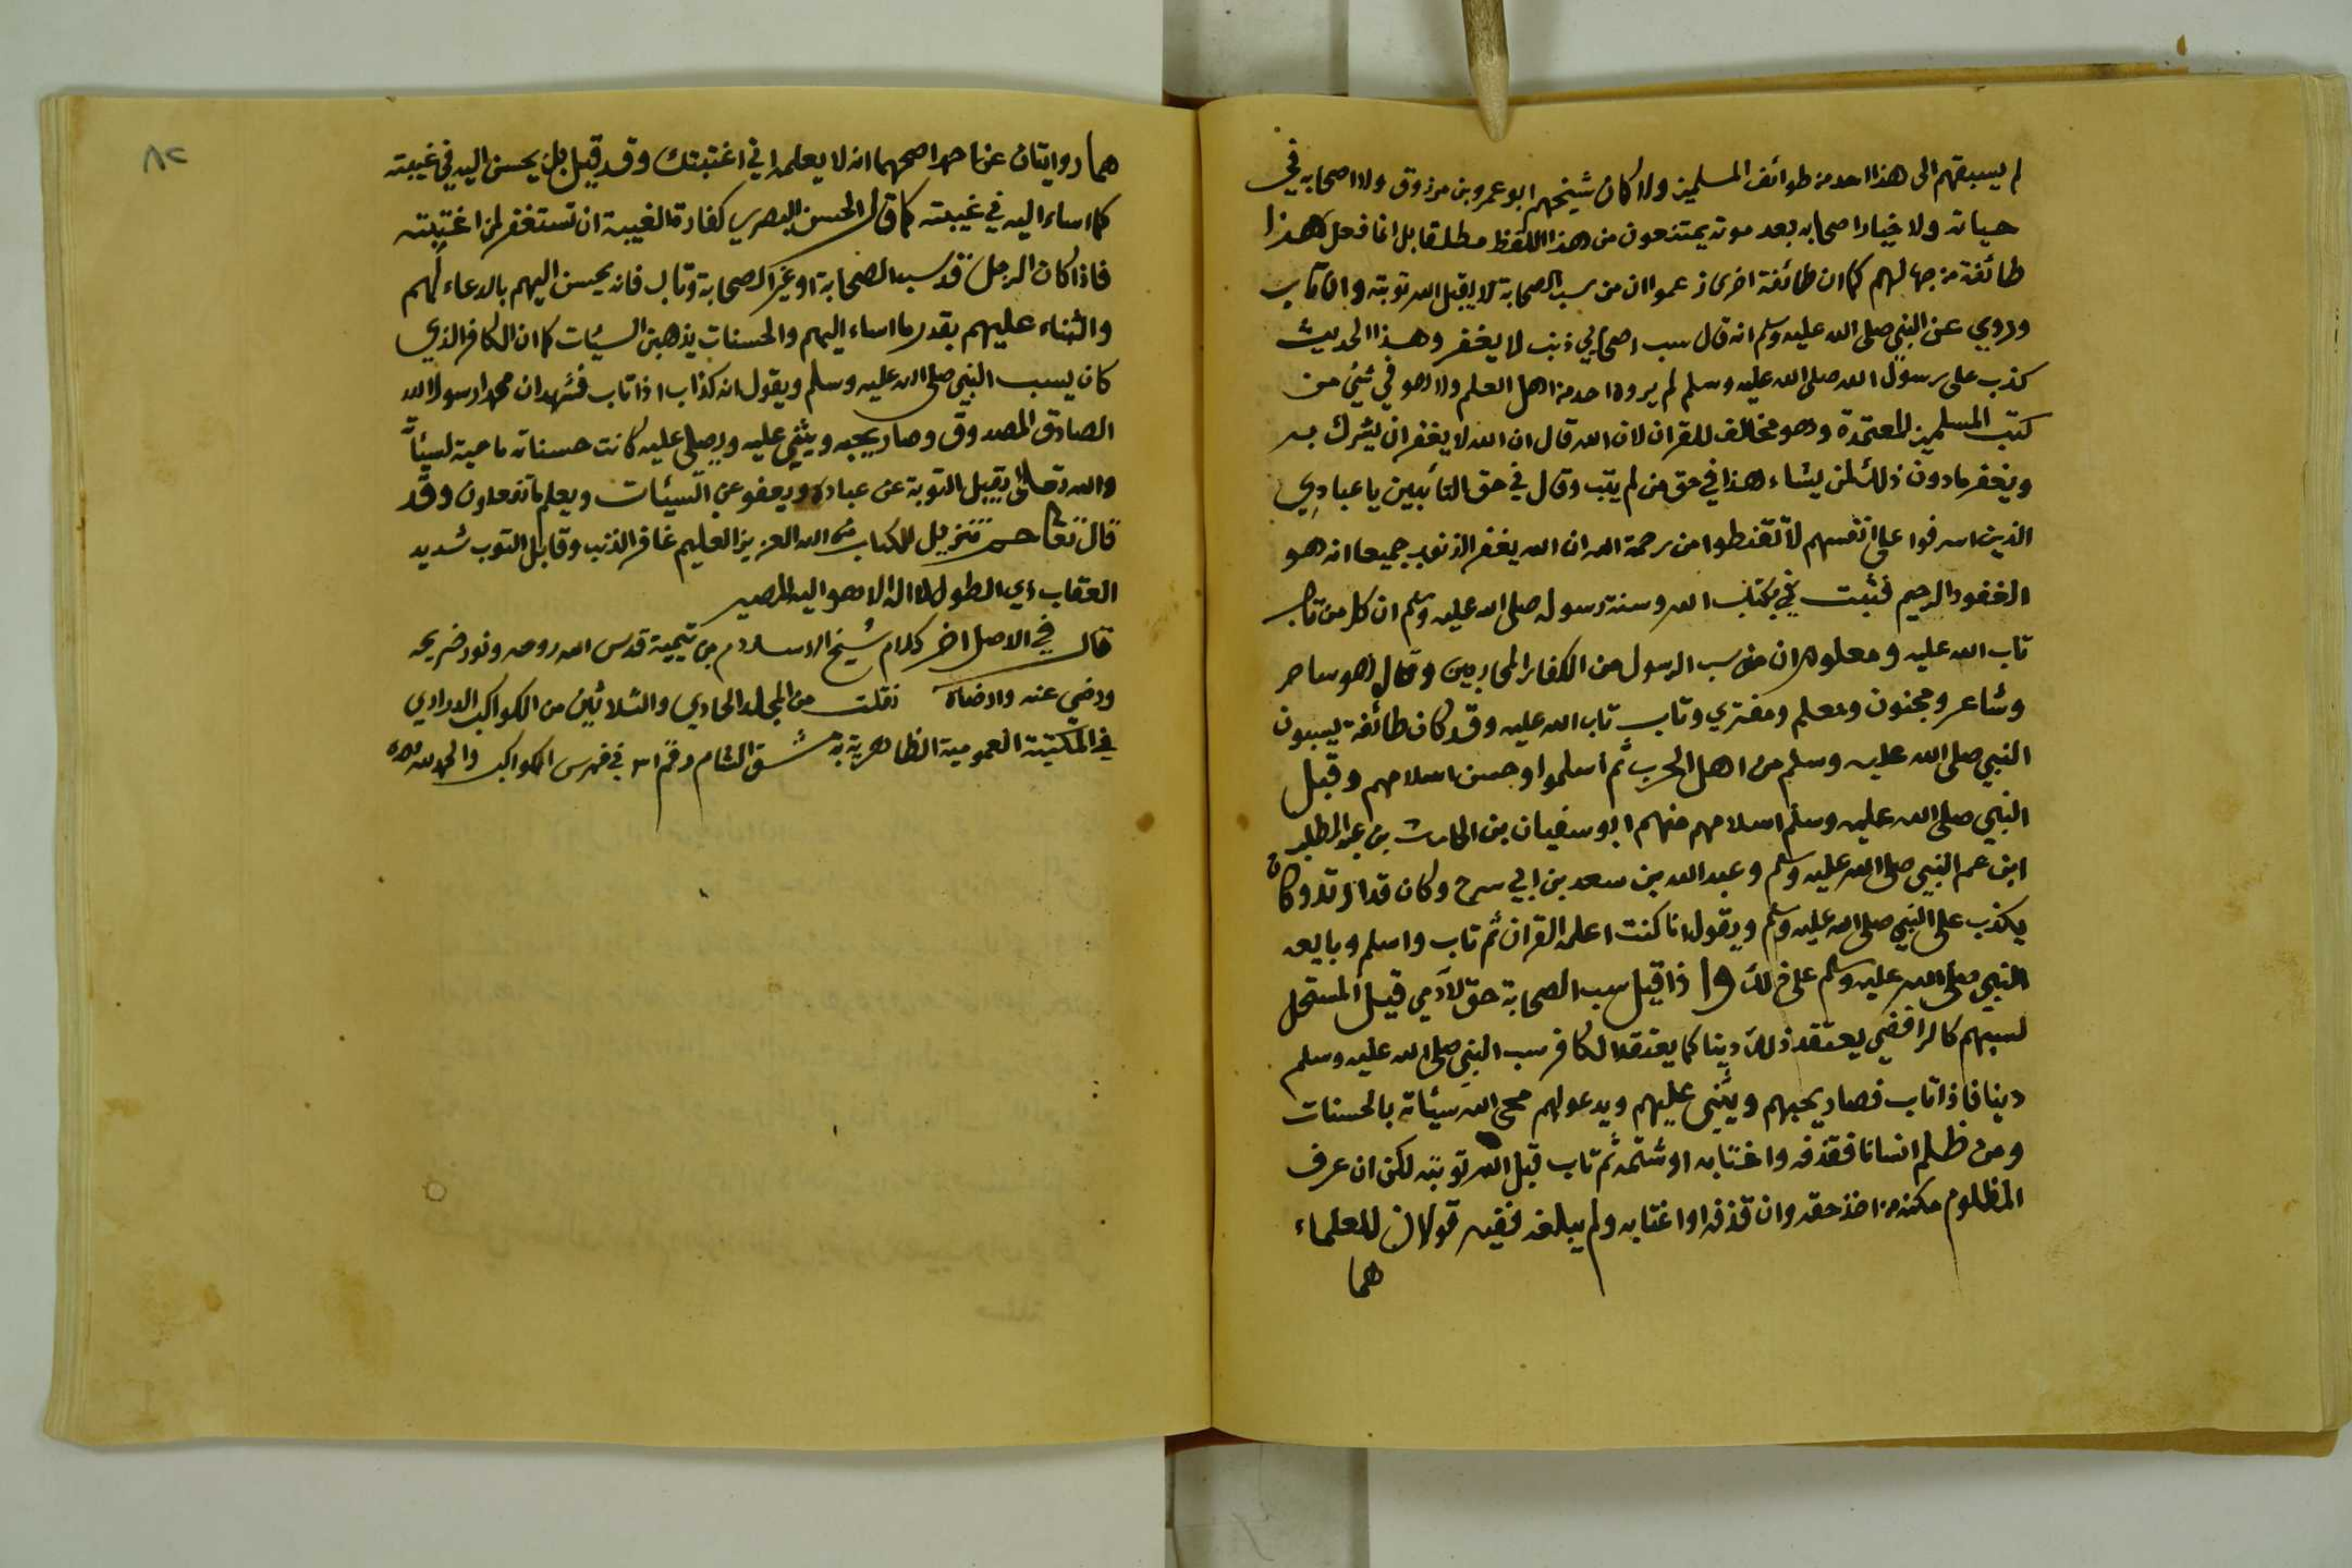 لم يسبقهم الى هذا احد من طوائف المسلمين ولا كان شيخهم ابو عمرو بن مرزوق ولا اصحابه في
حياته ولا خيار اصحابه بعد موته يمتنعون من هذا اللفظ مطلقا بل انما فعل هذا
طائفة من جهالهم كما ان طائفة اخرى زعموا ان من سب الصحابة لا يقبل الله توبته وان تاب
وروي عن النبي صلى الله عليه وسلم انه قال سب اصحابي ذنب لا يغفر وهذا الحديث
كذب على رسول الله صلى الله عليه وسلم لم يروه احد من اهل العلم ولا هو في شيئ من
كتب المسلمين المعتمدة وهو مخالف للقران لان الله قال ان الله لا يغفر ان يشرك به
ويغفر مادون ذلك لمن يشاء هذا في حق من لم يتب وقال في حق التائبين يا عبادي
الذين اسرفوا على انفسهم لا تقنطوا من رحمة الله ان الله يغفر الذنوب جميعا انه هو
الغفور الرحيم فثبت في كتاب الله وسنة رسوله صلى الله عليه وسلم ان كل من تاب
تاب الله عليه ومعلوم ان من سب الرسول من الكفار المحاربين وقال هو ساحر
وشاعر ومجنون ومعلم ومفتري وتاب تاب الله عليه وقد كان طائفة يسبون
النبي صلى الله عليه وسلم من اهل الحرب ثم اسلموا وحسن اسلامهم وقبل
النبي صلى الله عليه وسلم اسلامهم منهم ابو سفيان بن الحارث بن عبد المطلب
ابن عم النبي صلى الله عليه وسلم وعبد الله بن سعد بن ابي سرح وكان قد ارتد وكان
يكذب على النبي صلى الله عليه وسلم ويقول انا كنت اعلمه القران ثم تاب واسلم وبايعه
النبي صلى الله عليه وسلم على ذلك واذا قيل سب الصحابة حق لآدمي قيل المستحل
لسبهم كالرافضي يعتقد ذلك دينا كما يعتقد الكافر سب النبي صلى الله عليه وسلم
دينا فاذا تاب فصار يحبهم ويثني عليهم ويدعو لهم محى الله سيئاته بالحسنات
ومن ظلم انسانا فقذفه واغتابه او شتمه ثم تاب قبل الله توبته لكن ان عرف
المظلوم مكنه من اخذ حقه وان قذفه او اغتابه ولم يبلغه ففيه قولان للعلماء
هما
٨٢
هما روايتان عن احمد اصحهما انه لا يعلمه اني اغتبتك وقد قيل بل يحسن اليه في غيبته
كما اساء اليه في غيبته كما قال الحسن البصري كفارة الغيبة ان تستغفر لمن اغتبته
فاذا كان الرجل قد سب الصحابة او غير الصحابة وتاب فانه يحسن اليهم بالدعاء لهم
والثناء عليهم بقدر ما اساء اليهم والحسنات يذهبن السيئات كما ان الكافر الذي
كان يسب النبي صلى الله عليه وسلم ويقول انه كذاب اذا تاب فشهد ان محمدا رسول الله
الصادق المصدوق وصار يحبه ويثني عليه ويصلي عليه كانت حسناته ماحية لسيئاته
والله تعالى يقبل التوبة عن عباده ويعفو عن السيئات ويعلم ما تفعلون وقد
قال تعالى حم تنزيل الكتاب من الله العزيز العليم غافر الذنب وقابل التوب شديد
العقاب ذي الطول لا اله الا هو اليه المصير
قال في الاصل اخر كلام شيخ الاسلام بن تيمية قدس الله روحه ونور ضريحه
ورضي عنه وارضاه نقلت من المجلد الحادي والثلاثين من الكواكب الدراري
في المكتبة العمومية الظاهرية بدمشق الشام رقم ٣١ في فهرس الكواكب والحمد لله وحده